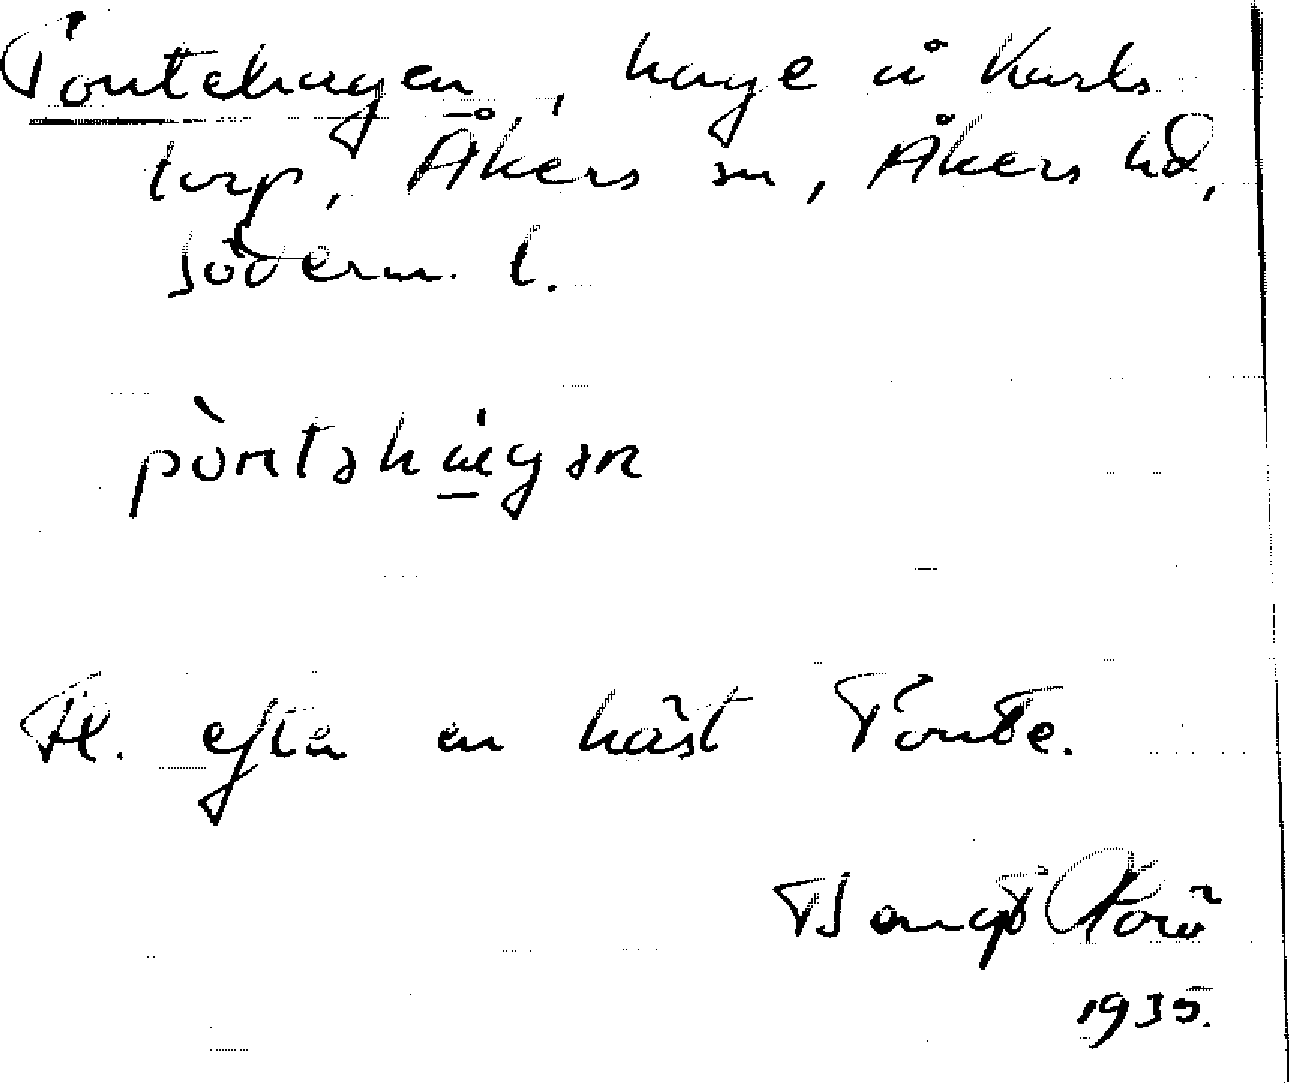 Pontehagen, hage å Karls
torp, Åkers sn, Åkers hd,
Söderm. l.
pòntəhàgən
Fl. efter en häst Ponte.
Bengt
1935.